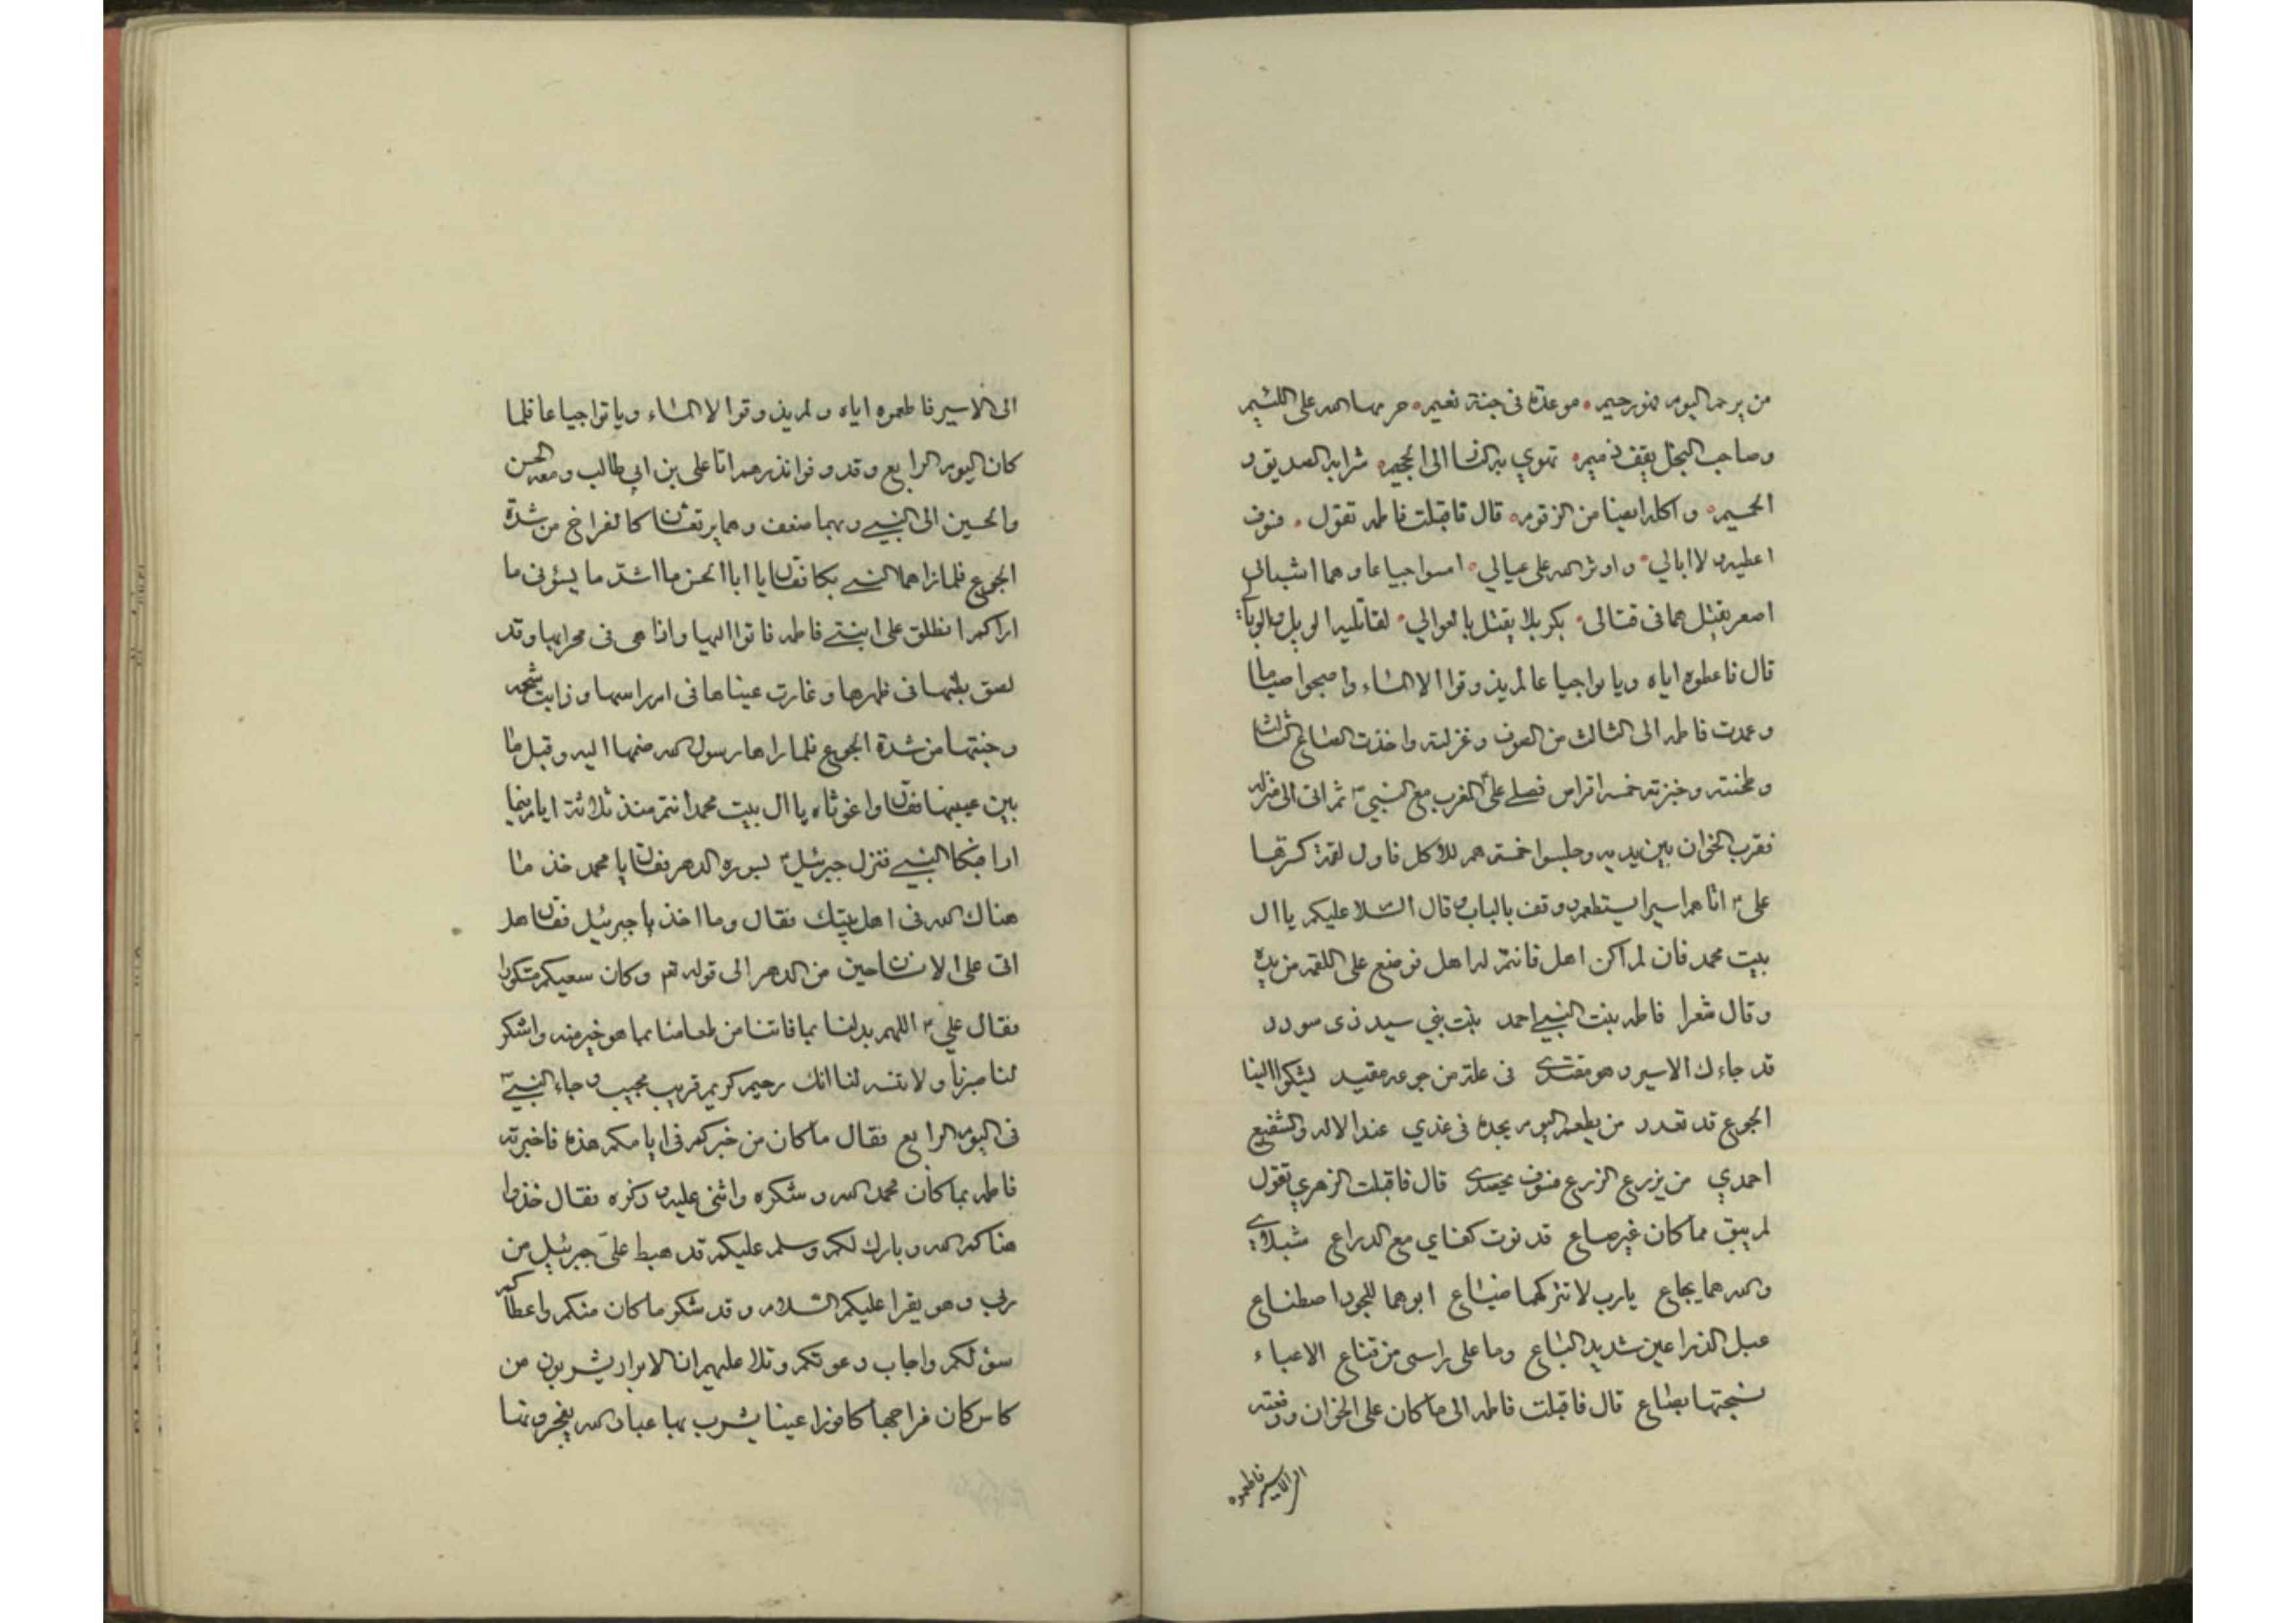 من يرحم اليوم فهو رحيم ۰ موعده في جنة نعيم ۰ حرمها الله على اللئيم
وصاحب البخل يقف ذميم ۰ تهوي به النار الى الجحيم ۰ شرابه الصديق و
الحميم ۰ واكله ايضا من الزقوم ۰ قال فاقبلت فاطمه تقول ۰ فسوف
اعطيه ولا ابالي ۰ واوثر الله على عيالي ۰ امسوا جياعا وهما اشبالي
اصغر يقتل هما في قتالي ۰ بكربلا يقتل بالعوالي ۰ لقاتليه الويل والوبا
قال فاعطوه اياه وباتوا جياعا لم يذوقوا الا الماء واصبحوا صياما
وعمدت فاطمه الى الثالث من الصوف وغزلته واخذت الصاع الثالث
وطحنته وخبزته خمسه اقراص فصلى علي المغرب مع النبي ثم اتى الى منزله
فقرب الخوان بين يديه وجلسوا خمستهم للاكل فاول لقمة كسرتها
علي اتاهم اسير يستطعم ووقف بالباب وقال السلا عليكم يا ال
بيت محمد فان لم اكن اهل فانتم له اهل فوضع علي اللقمه من يده
وقال شعرا فاطمه بنت النبي احمد بنت نبي سيد ذي سودد
قد جاءك الاسير وهو مقتدى في علة من جوعه مقيد ليشكوا الينا
الجوع قد تعدد من يطعم اليوم يجده في غدي عند الاله والشفيع
احمدي من يزرع الزرع فسوف يحصدي قال فاقبلت الزهري تقول
لم يبق مما كان غير صاع قد نوت كفاي مع الدراع شبلاي
والله هما بجاع يا رب لا تتركهما ضياع ابوهما للجود اصطناع
عبل الذراعين شديد الباع وما على راسي من قناع الا عباء
نسجتها بصاع قال فاقبلت فاطمه الى ما كان على الخوان ودفعته
الى الاسير فاطعموه
الى الاسير فاطعموه اياه ولم يذوقوا الا الماء وباتوا جياعا فلما
كان اليوم الرابع وقد وفوا نذرهم اتا علي بن ابي طالب ومعه الحسن
والحسين الى النبي وبهما ضعف وهما يرتعشا كالفراخ من شدة
الجوع فلما راهما النبي بكا فقال يا ابا الحسن ما اشد ما يسؤني ما
اراكم انطلق على ابنتي فاطمه فاتوا اليها واذا هي في محرابها وقد
لصق بطنها في ظهرها وغارت عيناها في ام راسها وذابت شحمه
وجنتها من شدة الجوع فلما راها رسول الله ضمها اليه وقبل ما
بين عينيها فقال واغوثاه يا ال بيت محمد انتم منذ ثلاثة ايام فيما
ارا فبكا النبي فنزل جبرئيل بسوره الدهر فقال يا محمد خذ ما
هناك الله في اهل بيتك فقال وما اخذ يا جبرئيل فقال هل
اتى على الانسان حين من الدهر الى قوله تعم وكان سعيكم مشكورا
فقال علي اللهم بدلنا بما فاتنا من طعامنا بما هو خير منه واشكر
لنا صبرنا ولا تنسه لنا انك رحيم كريم قريب مجيب وجاء النبي
في اليوم الرابع فقال ما كان من خبركم في ايامكم هذه فاخبرته
فاطمه بما كان فحمد الله وشكره واثنى عليه وذكره فقال خذوا
هناكم الله وبارك لكم وسلم عليكم قد هبط علي جبرئيل من
ربي وهو يقرا عليكم السلام وقد شكر ما كان منكم واعطاكم
سؤلكم واجاب دعوتكم وتلا عليهم ان الابرار يشربون من
كاس كان مزاجها كافورا عينا يشرب بها عباد الله يفجرونها